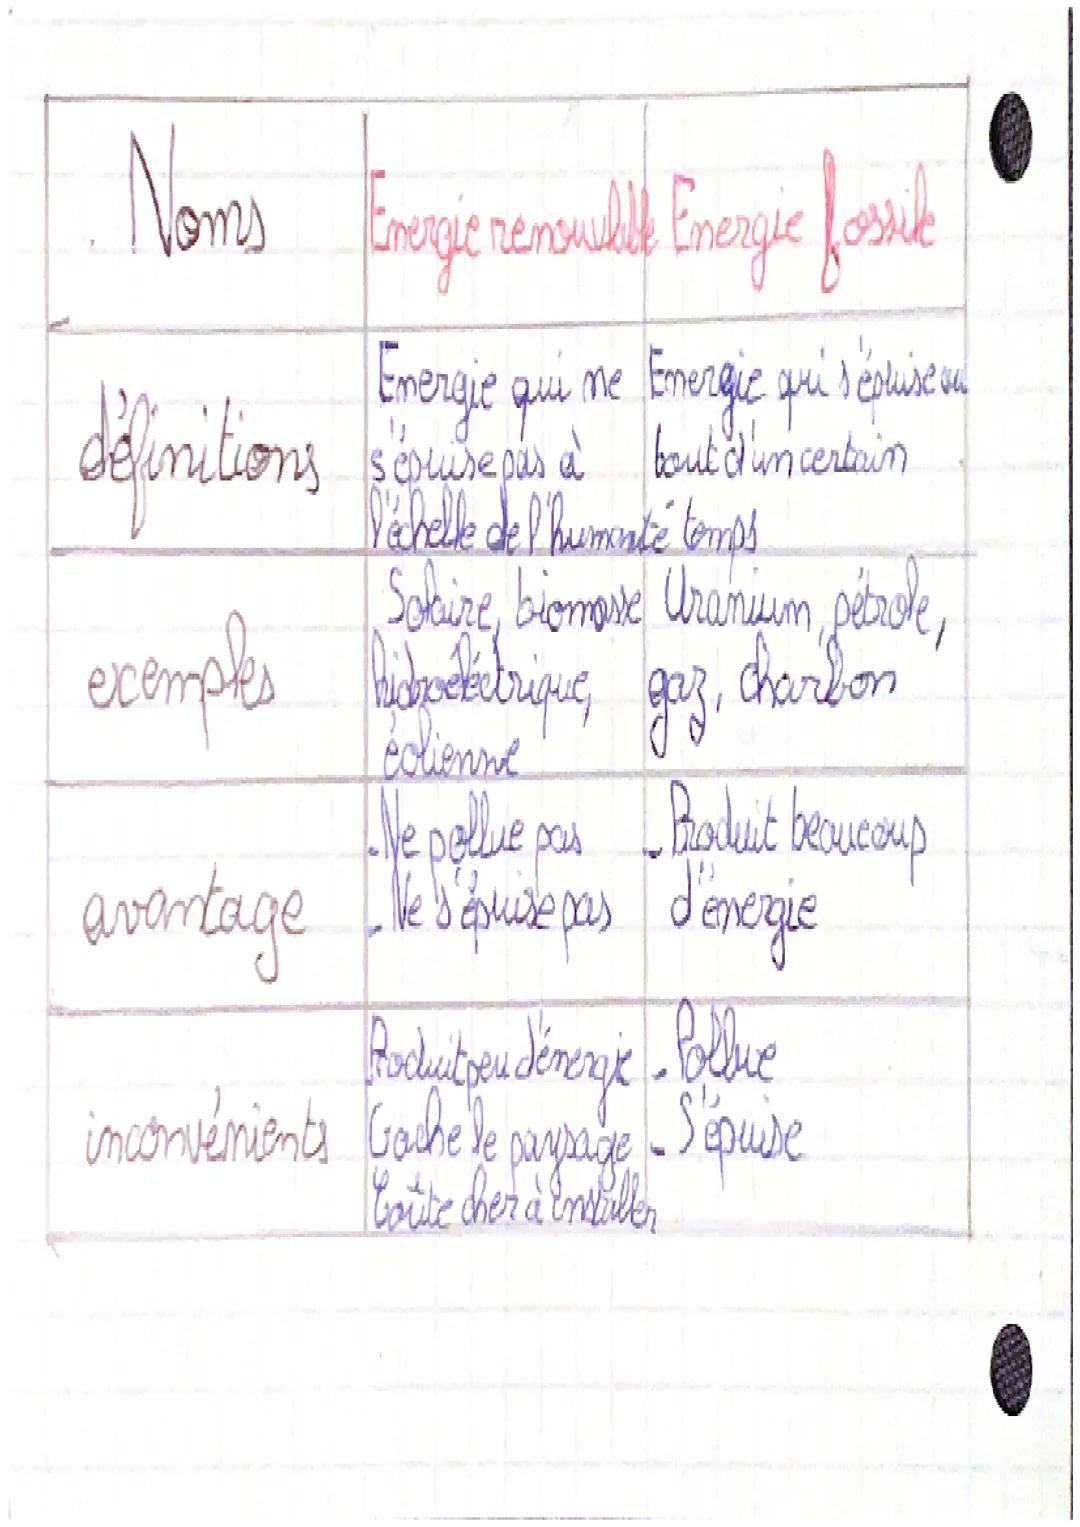 Noms
Energie renouvlable
Energie fossile
définitions
Energie qui ne
s'épuise pas à
l'échelle de l'humanité
Energie qui s'épuise au
bout d'un certain
temps
exemples
Solaire, biomasse
hidroéléctrique,
éolienne
Uranium, pétrole,
gaz, charbon
avantage
- Ne pollue pas
- Ne s'épuise pas
- Produit beaucoup
d'énergie
inconvénients
Produit peu d'énergie
Gache le paysage
Coûte cher à installer
- Pollue
- S'épuise